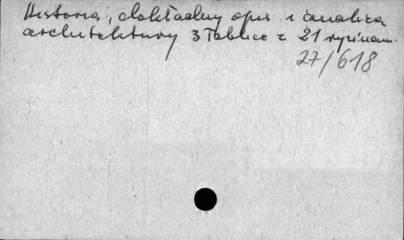 Historia, dokładny opis i analiza
architektury 3 tablice z 21 rycinami
27/618